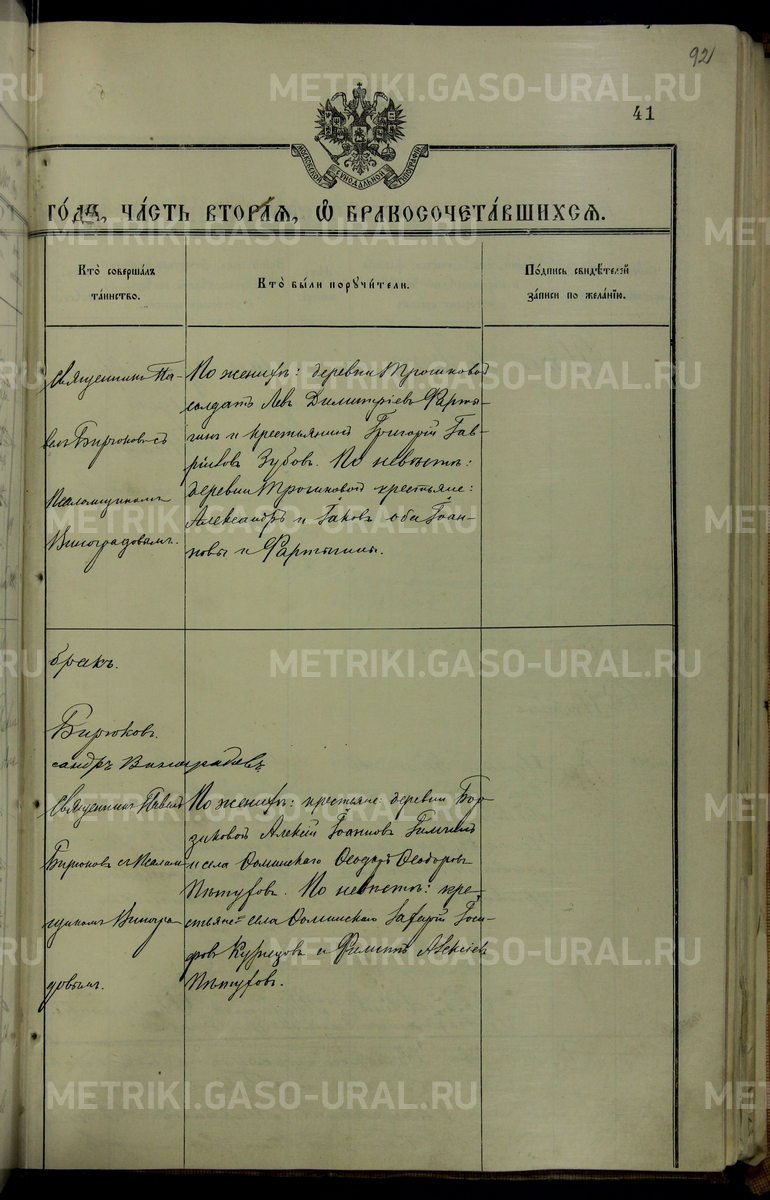 921
41
МОСКОВСКОЙ СѴНОДАЛЬНОЙ ТИПОГРАФІИ
ГО́ДЪ, ЧА́СТЬ ВТОРА́Я, Ѡ БРАКОСОЧЕТА́ВШИХСЯ.
Кто̀ соверша́лъ
та́инство.
Кто̀ бы́ли порꙋчи́тели.
По́дпись свидѣ́телей
за́писи по жела́нїю.
Священникъ Па-
велъ Бирюковъ съ
Псаломщикомъ
Виноградовымъ.
По женихѣ: деревни Трошковой
солдатъ Левъ Димитріевъ Фарты-
гинъ и крестьянинъ Григорій Гав-
ріиловъ Зубовъ. По невѣстѣ:
деревни Трошковой крестьяне:
Александръ и Іаковъ оба Іоан-
новы и Фартыгины.
бракъ.
Бирюковъ.
сандръ Виноградовъ
Священникъ Павелъ
Бирюковъ съ Псалом-
щикомъ Виногра-
довымъ.
По женихѣ: крестьяне: деревни
Алексій Іоанновъ
и села Ѳоминскаго Ѳеодоръ Ѳеодоровъ
Пѣтуховъ. По невѣстѣ: кре-
стьяне села Ѳоминскаго Захарій Іоси-
фовъ Кузнецовъ и Филиппъ Алексіевъ
Пѣтуховъ.
METRIKI.GASO-URAL.RU